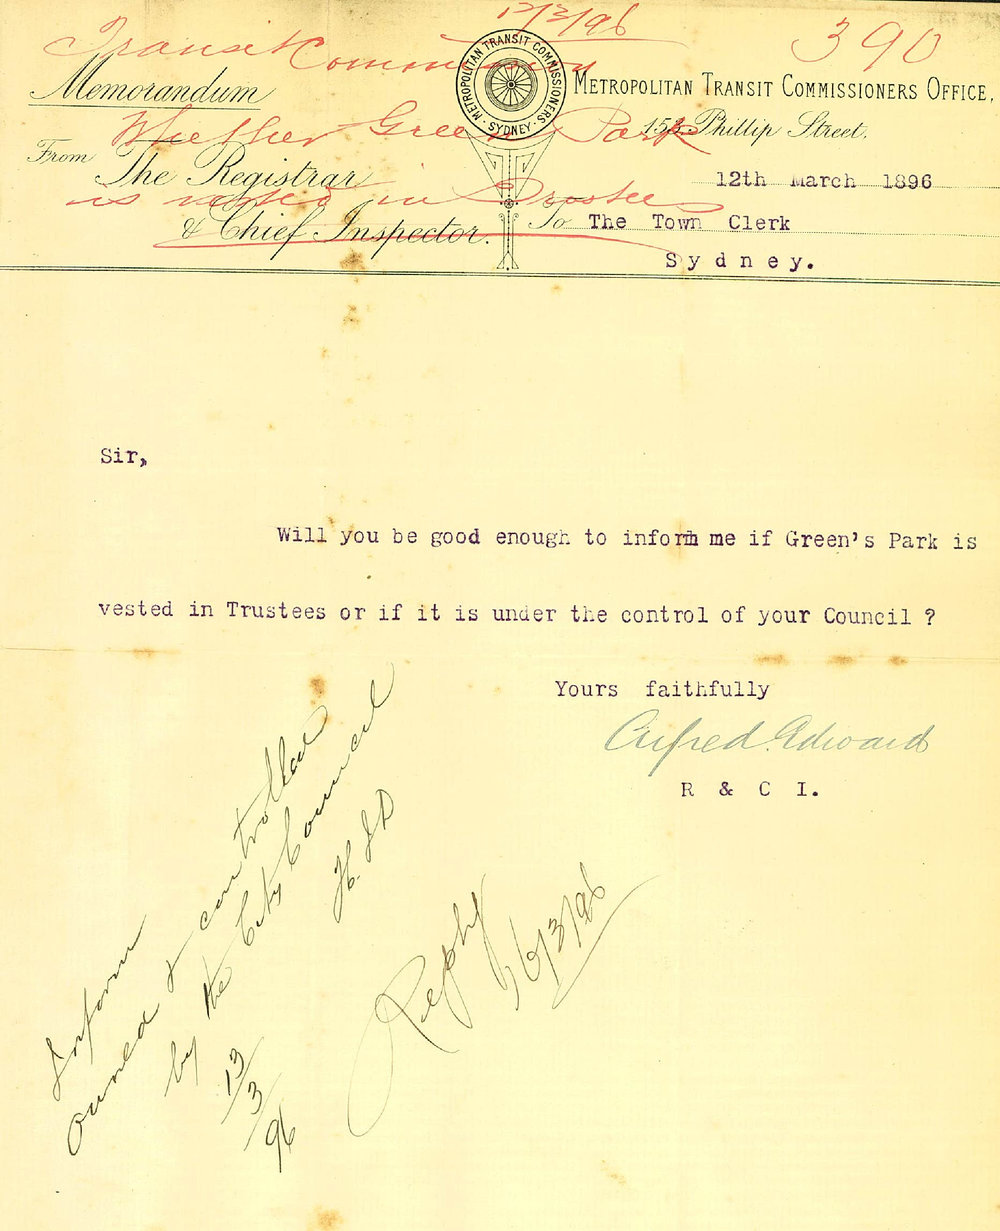 12/3/96
390
Transit Commission
METROPOLITAN TRANSIT COMMISSIONERS
· SYDNEY ·
Memorandum
METROPOLITAN TRANSIT COMMISSIONERS OFFICE,
Whether Green Park
Phillip Street.
From The Registrar
12th March 1896
is vested in Trustees
& Chief Inspector.
To The Town Clerk
Sydney.
Sir,
Will you be good enough to inform me if Green's Park is
vested in Trustees or if it is under the control of your Council ?
Yours faithfully
Alfred Edward
R & C I.
Inform
owned & controlled
by the City Council
H.
13/3/96
Reply 16/3/96